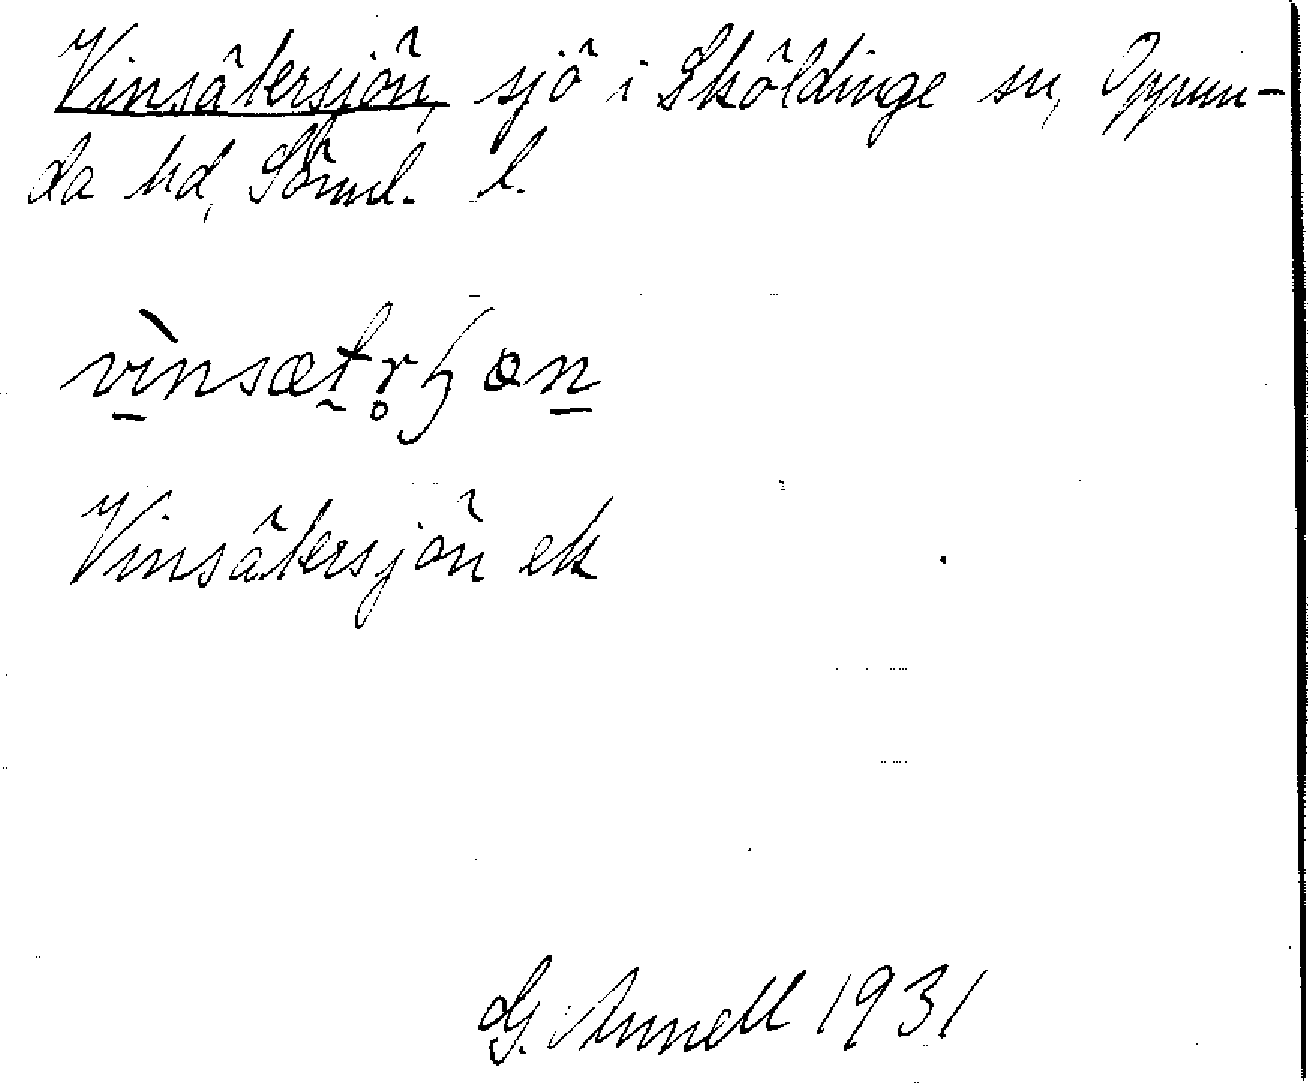 Vinsätersjön, sjö i Sköldinge sn, Oppun-
da hd, Söml. l.
vìnsætr̥ɧøn
Vinsätersjön ek
G. Annell 1931